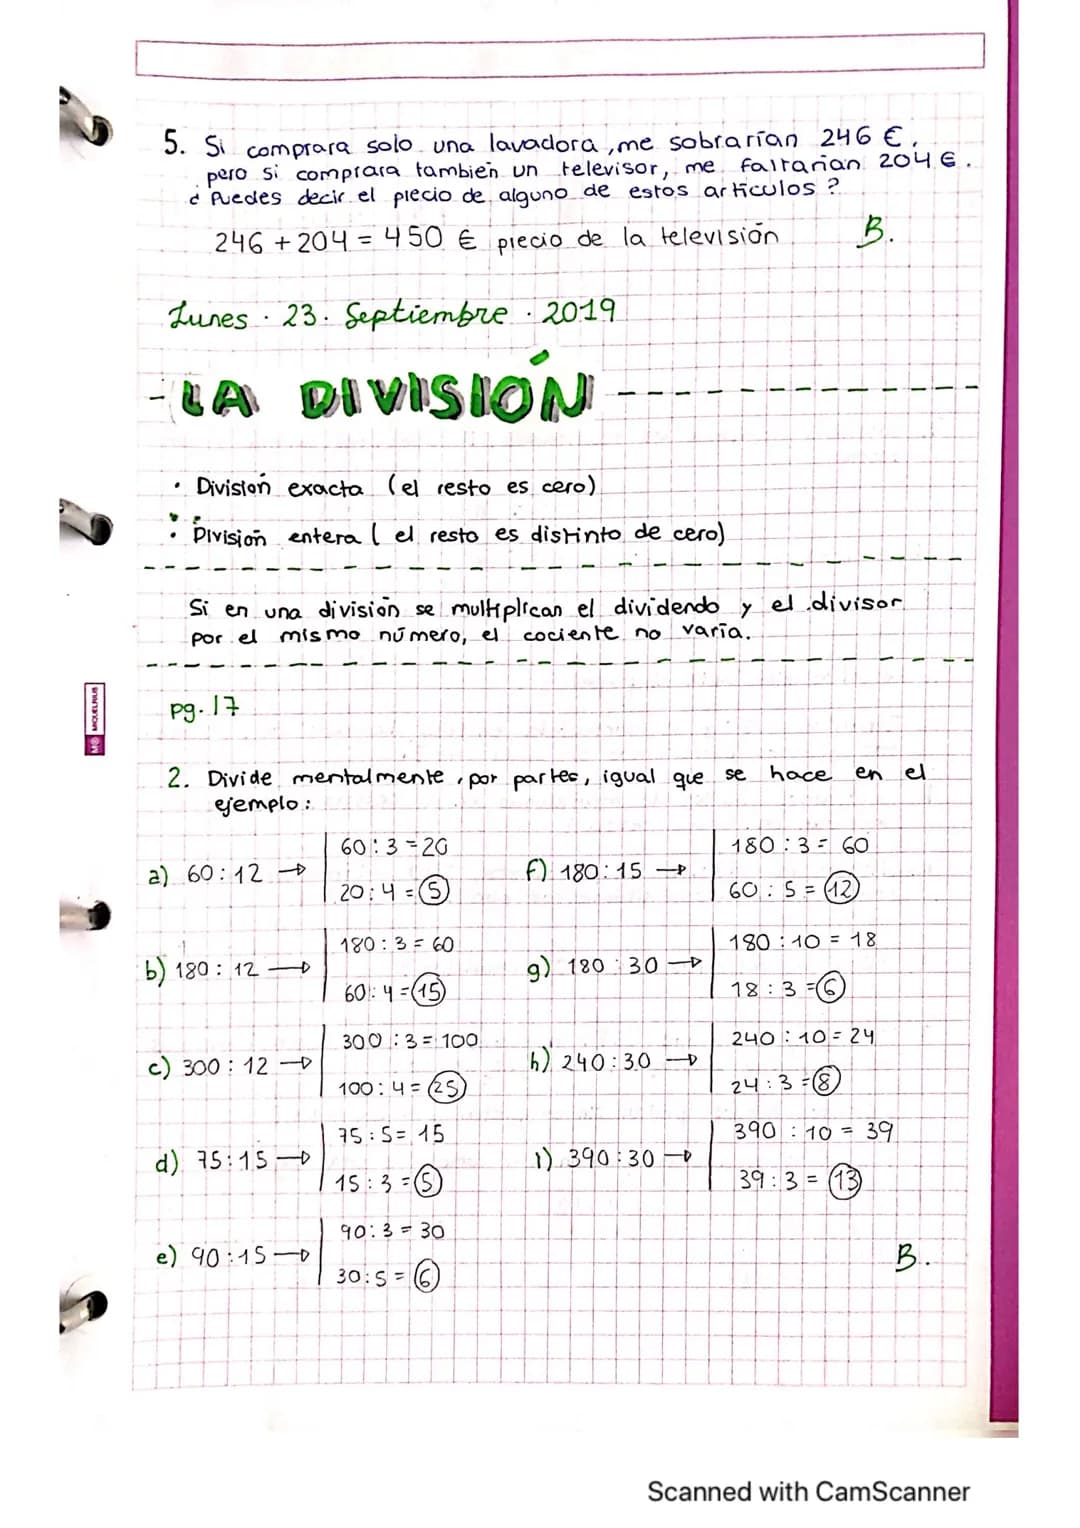 5. Si comprara solo una lavadora, me sobrarían 246 €,
pero si comprara también un televisor, me faltarían 204 €.
¿Puedes decir el precio de alguno de estos artículos?
246 + 204 = 450 € precio de la televisión B.
Lunes · 23 · Septiembre · 2019
- LA DIVISIÓN
• División exacta (el resto es cero)
• División entera ( el resto es distinto de cero)
Si en una división se multiplican el dividendo y el divisor
por el mismo número, el cociente no varía.
pg. 17
MR MIQUELRIUS
2. Divide mentalmente, por partes, igual que se hace en el
ejemplo:
a) 60 : 12 → 60 : 3 = 20
20 : 4 = 5
f) 180 : 15 → 180 : 3 = 60
60 : 5 = 12
b) 180 : 12 → 180 : 3 = 60
60 : 4 = 15
g) 180 : 30 → 180 : 10 = 18
18 : 3 = 6
c) 300 : 12 → 300 : 3 = 100
100 : 4 = 25
h) 240 : 30 → 240 : 10 = 24
24 : 3 = 8
d) 75 : 15 → 75 : 5 = 15
15 : 3 = 5
i) 390 : 30 → 390 : 10 = 39
39 : 3 = 13
e) 90 : 15 → 90 : 3 = 30
30 : 5 = 6
B.
Scanned with CamScanner